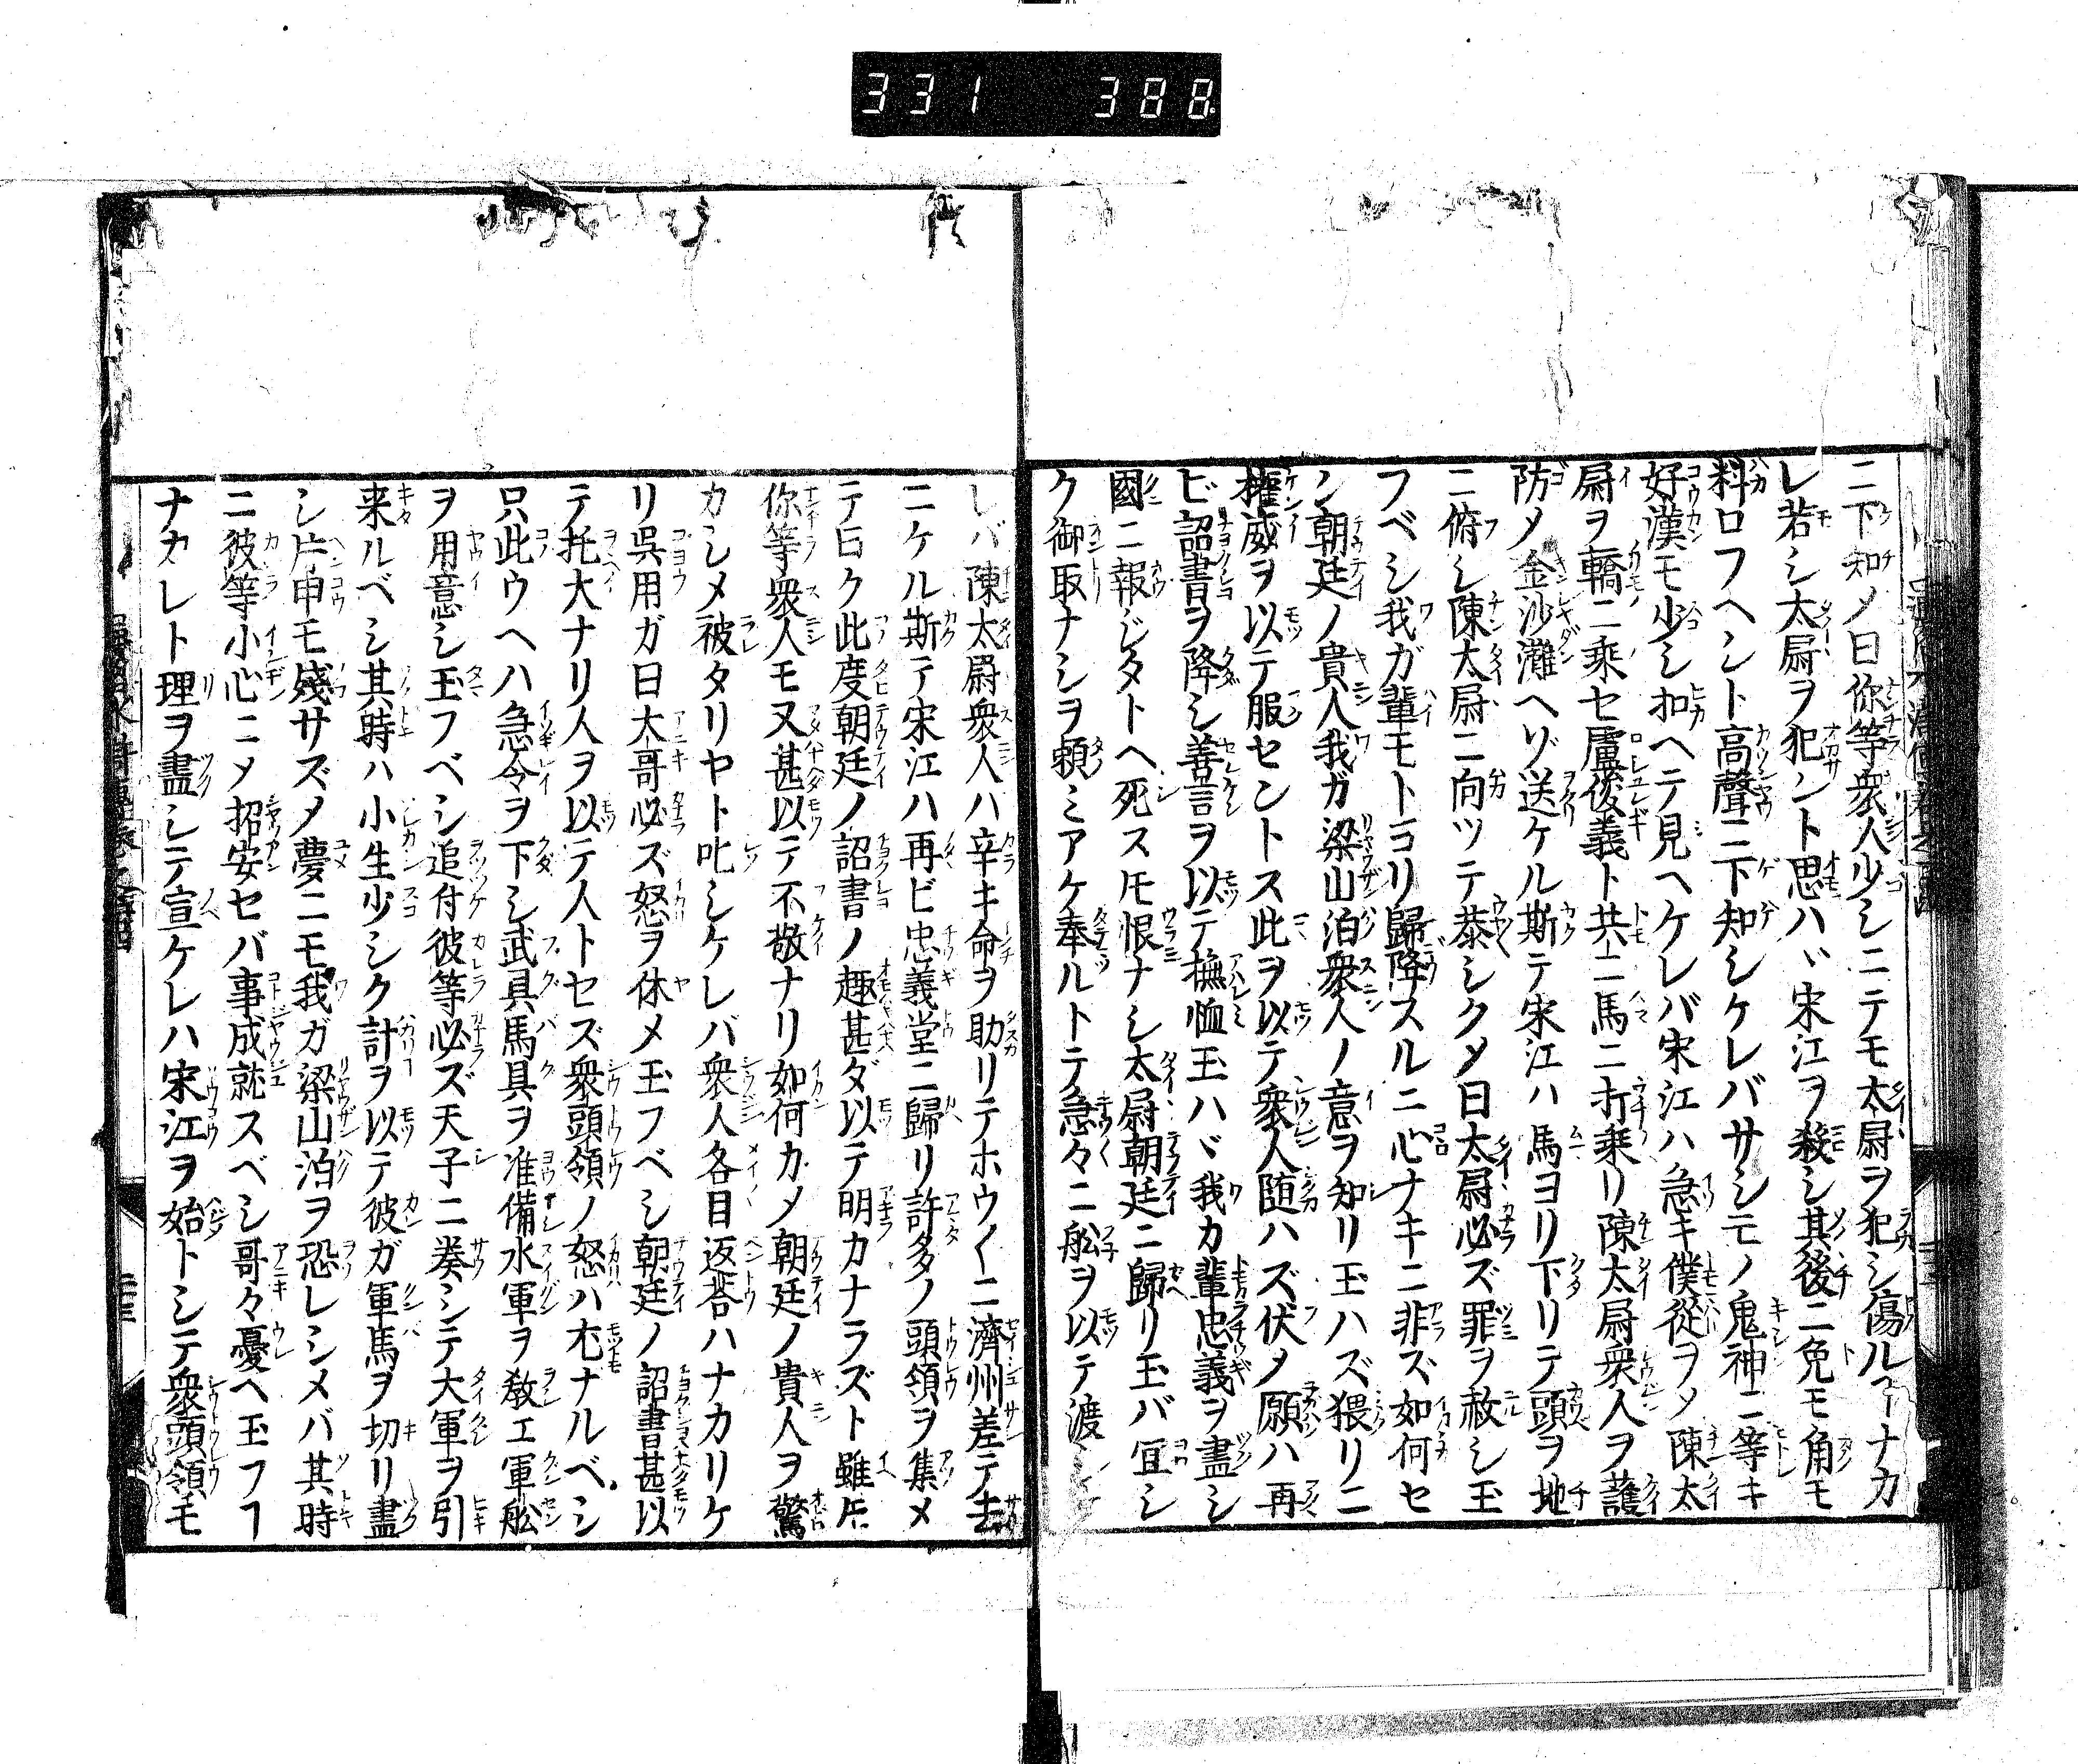 331 388
ニ下知メ曰你等衆人少シニテモ太尉ヲ犯シ傷ルヿナカ
レ若シ太尉ヲ犯ント思ハヾ宋江ヲ殺シ其後ニ兔モ角モ
料ロフヘシト高聲ニ下知シケレバサシモノ鬼神ニ等キ
好漢モ少シ扣ヘテ見ヘケレバ宋江ハ急キ僕從ヲメ陳太
尉ヲ轎ニ乘セ盧後義ト共ニ馬ニ打乘リ陳太尉衆人ヲ護
防メ金沙灘ヘゾ送ケル斯テ宋江ハ馬ヨリ下リテ頭ヲ地
ニ俯シ陳太尉ニ向ツテ恭シクメ曰太尉必ズ罪ヲ赦シ玉
フベシ我ガ輩モトヨリ歸降スルニ心ナキニ非ズ如何セ
ン朝廷ノ貴人我ガ梁山泊衆人ノ意ヲ知リ玉ハズ猥リニ
權威ヲ以テ服セントス此ヲ以テ衆人随ハズ伏メ願ハ再
ビ詔書ヲ降シ善言ヲ以テ撫恤玉ハヾ我カ輩忠義ヲ盡シ
國ニ報ジタトヘ死スモ恨ナシ太尉朝廷ニ歸リ玉バ宜シ
ク御取ナシヲ頼ミアケ奉ルトテ急々ニ舩ヲ以テ渡シ
レバ陳太尉衆人ハ辛キ命ヲ助リテホウ〱ニ濟州差テ去
ニケル斯テ宋江ハ再ビ忠義堂ニ歸リ許多ノ頭領ヲ集メ
テ曰ク此度朝廷ノ詔書ノ趣甚ダ以テ明カナラズト雖𪜈
你等衆人モ又甚以テ不敬ナリ如何カメ朝廷ノ貴人ヲ驚
カシメ被タリヤト叱シケレバ衆人各目返荅ハナカリケ
リ呉用ガ曰大哥必ズ怒ヲ休メ玉フベシ朝廷ノ詔書甚以
テ托大ナリ人ヲ以テ人トセズ衆頭領ノ怒ハ尤ナルベシ
只此ウヘハ急令ヲ下シ武具馬具ヲ准備水軍ヲ教エ軍舩
ヲ用意シ玉フベシ追付彼等必ズ天子ニ奏シテ大軍ヲ引
来ルベシ其時ハ小生少シク計ヲ以テ彼ガ軍馬ヲ切リ盡
シ片甲モ殘サズメ夢ニモ我ガ梁山泊ヲ恐レシメバ其時
ニ彼等小心ニメ招安セバ事成就スベシ哥々憂ヘ玉フヿ
ナカレト理ヲ盡シテ宣ケレハ宋江ヲ始トシテ衆頭領モ